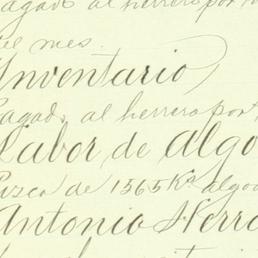 Pagado al herrero por
el mes.
Inventario
Pagado al herrero por
Labor de algo
Pizca de 1565 Ks algod
Antonio Herr